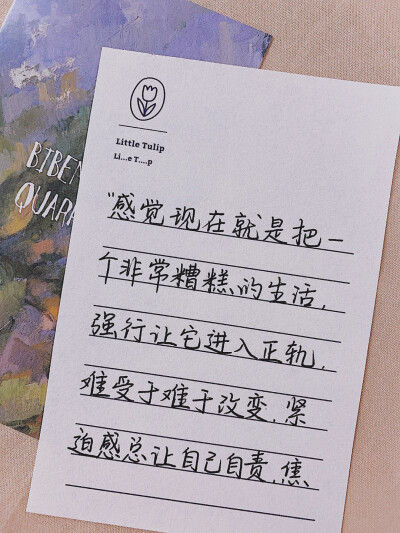 BIBEN
QUARA
Little Tulip
Li...e T....p
“感觉现在就是把一
个非常糟糕的生活，
强行让它进入正轨，
难受于难于改变，紧
迫感总让自己自责，焦